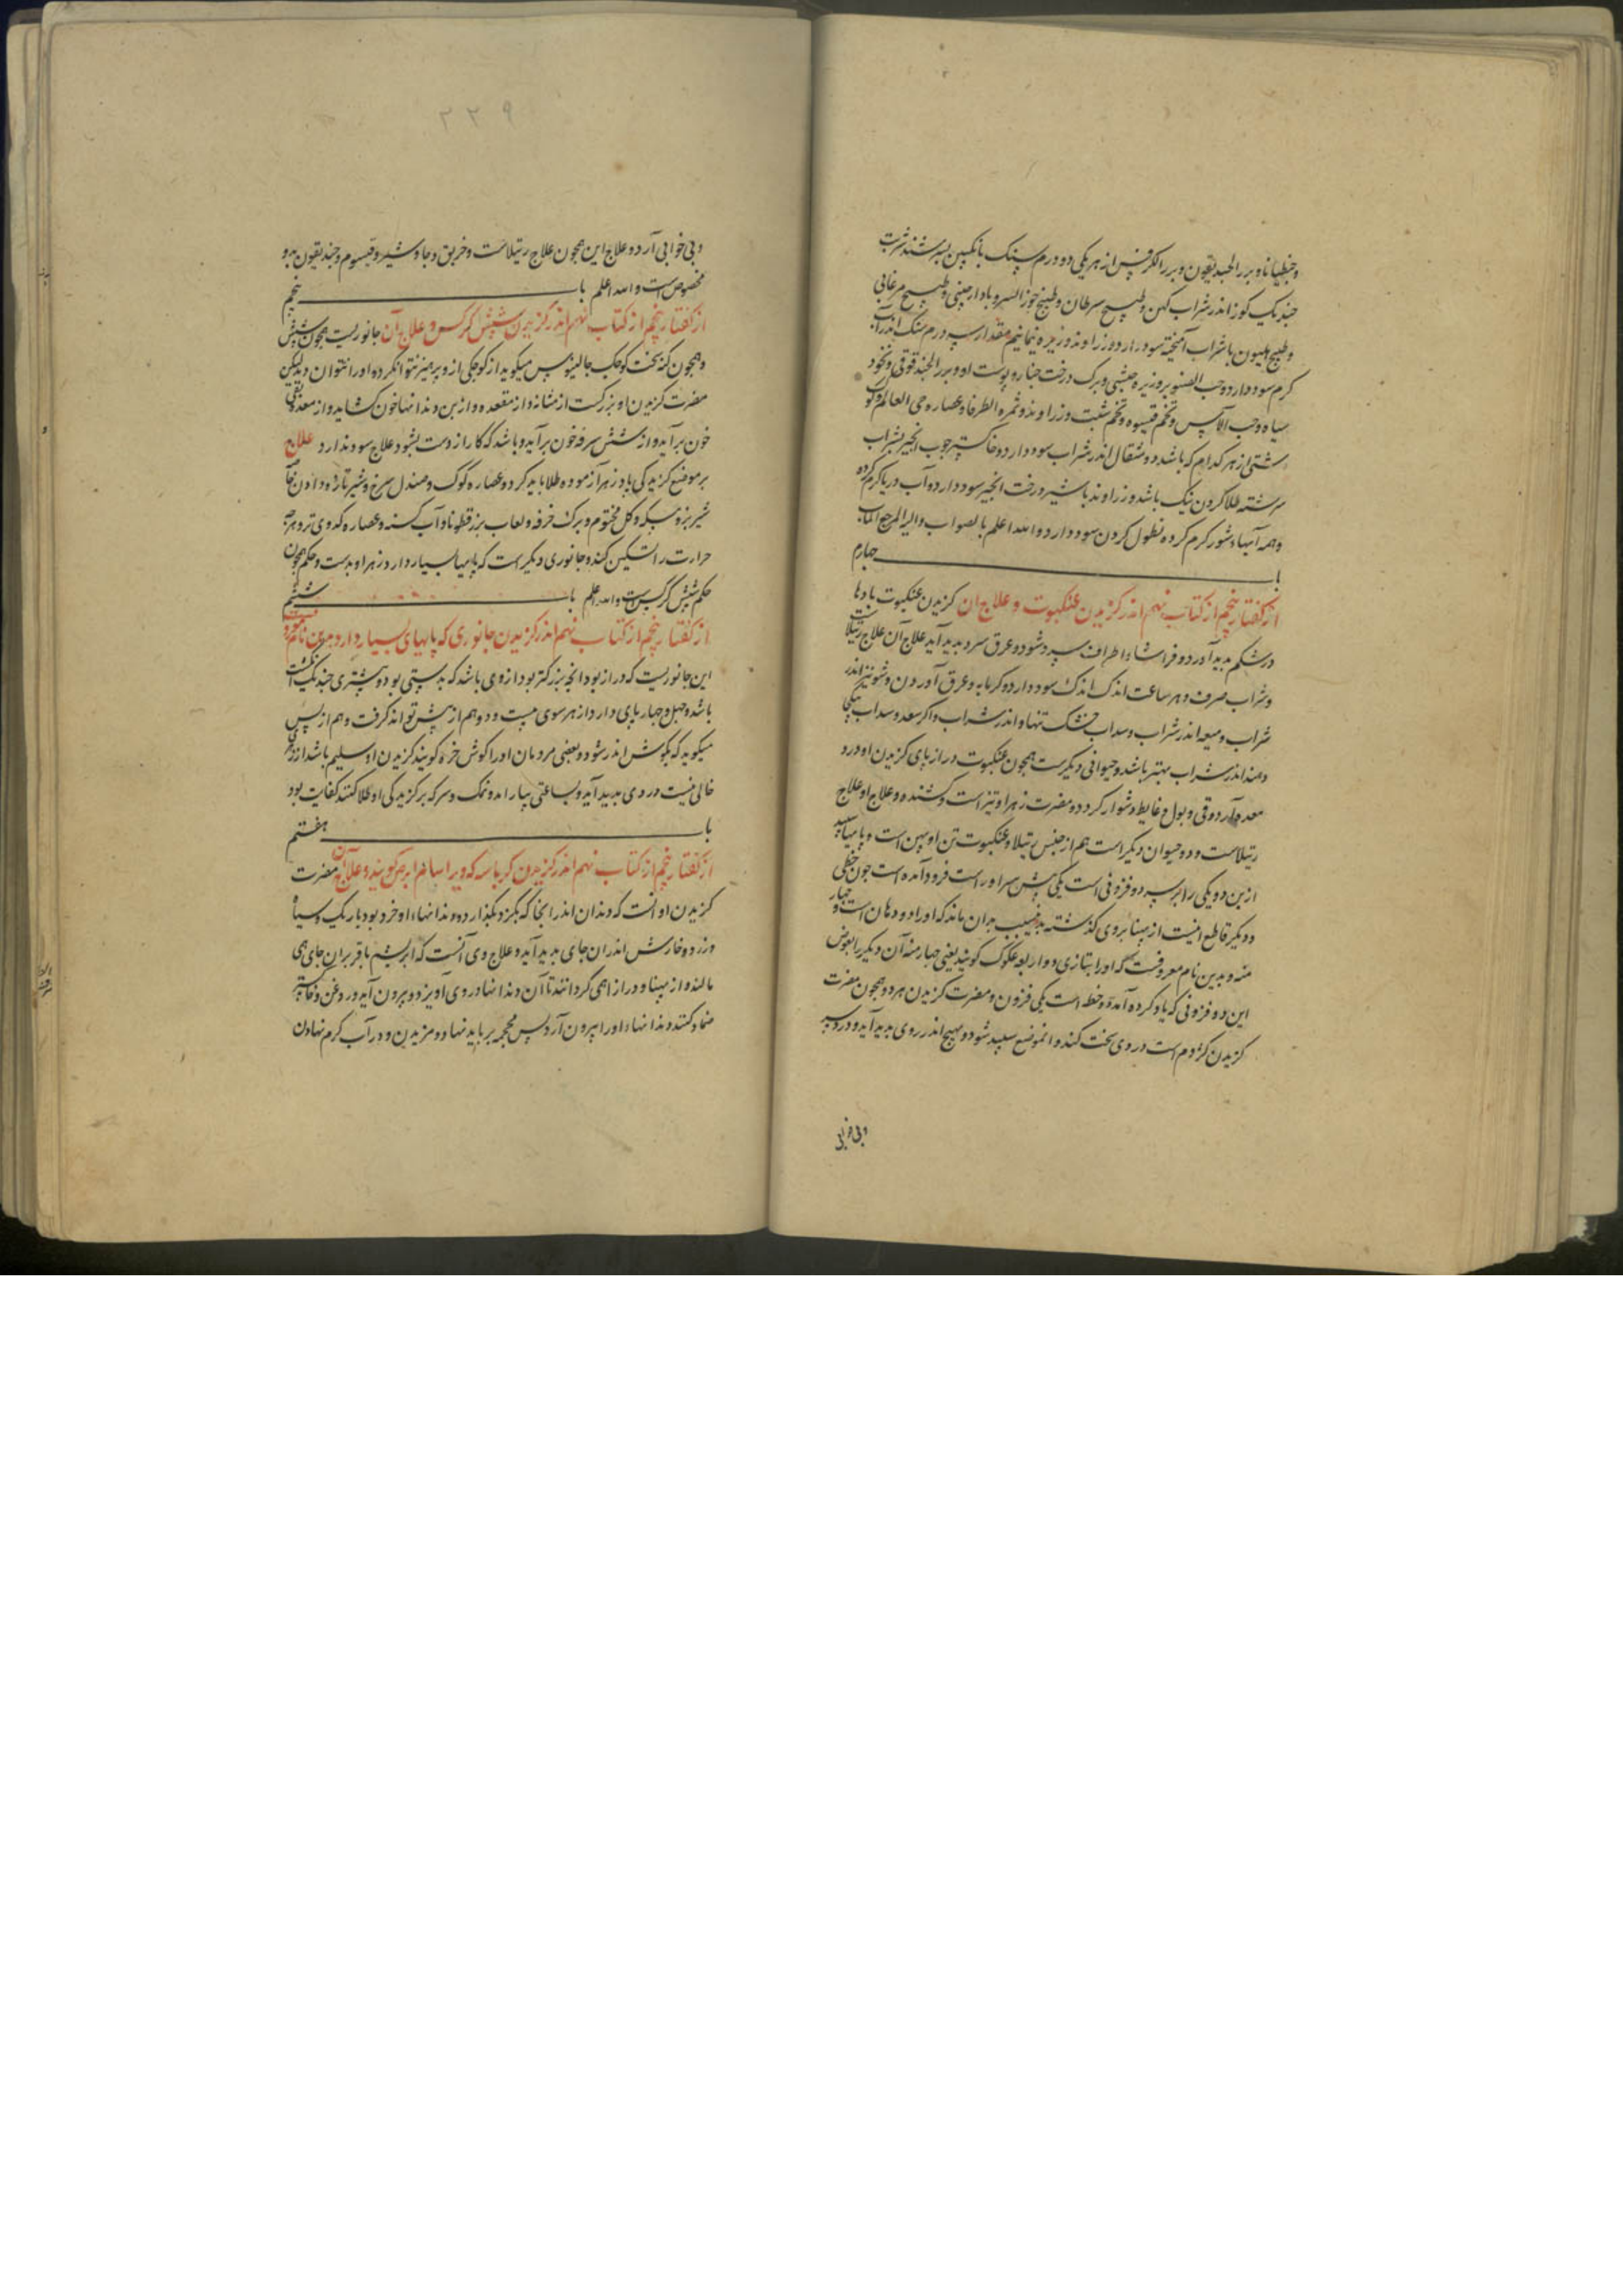 وجنطیانا وبزر الحندقوقون وبزر الکرفس از هر یکی دو درم سنک بانکبین بسرشند شربت
جند یک کوز اندر شراب کهن وطبیخ سرطان وطبیخ جوز السرو با دارچینی وطبیخ مرغابی
وطبیخ هلیون با شراب آمیخته سود دارد وزراوند وزیره نیمانیم مقدار سه درم سنک اندر آب
کرم سود دارد وحب الصنوبر وزیره حبشی وبرک درخت چنار وپوست او وبزر الحندقوقی ونخود
سیاه وحب الآس وتخم قیسوم وتخم شبت وزراوند وثمره الطرفا وعصاره حی العالم وکوک
دشتی از هر کدام که باشد دو مثقال اندر شراب سود دارد وخاکستر چوب انجیر بشراب
سرشته طلا کردن نیک باشد وزراوند با شیر درخت انجیر سود دارد وآب دریا کرم کرده
وهمه آبهاء شور کرم کرده نطول کردن سود دارد والله اعلم بالصواب والیه المرجع والماب
باب چهارم
از کفتار پنجم از کتاب نهم اندر کزیدن عنکبوت وعلاج ان کزیدن عنکبوت بادها
در شکم بدید آورد وفراشا واطراف سرد شود وعرق سرد بدید آید علاج آن علاج رتیلاست
وشراب صرف وهر ساعت اندک اندک سود دارد وکرمابه وعرق آوردن وشونیز اندر
شراب ومیعه اندر شراب وسداب خشک تنها واندر شراب واکر سعد وسداب یکجا
دهند اندر شراب بهتر باشد وحیوانی دیکرست همچون عنکبوت دراز پای کزیدن او درد
معده آرد وقی وبول وغایط دشوار کردد ومضرت زهر او تیز است وکشنده وعلاج او علاج
رتیلاست ودو حیوان دیکر است هم از جنس رتیلا وعنکبوت تن او پهن است وپایها سپید
ازین دو یکی را بر سر دو فزونی است یکی پیش سر او راست فرود آمده است چون خطی
ودیکر قاطع اینست از پهنا بروی کذشته بدین سبب بدان ماند که او را دو دهان است وچهار
منه وبدین نام معروفست که او را بتازی ذو اربعه عکوک کویند یعنی چهار منه آن دیکر را بعوض
این دو فزونی که یاد کرده آمد دو خط است یکی فزون ومضرت کزیدن هر دو همچون مضرت
کزیدن کژدم است درد وی سخت کند وانموضع سپید شود وتهیج اندر روی بدید آید ودرد سر
وبی خوابی
۲۳۹
وبی خوابی آرد وعلاج این همچون علاج رتیلاست وخربق وجاوشیر وقیسوم وجندقیقون بدو
مخصوص است والله اعلم باب پنجم
از کفتار پنجم از کتاب نهم اندر کزیدن شپش کرکس وعلاج آن جانوریست همچون شپش
وهمچون کنه سخت کوچک جالینوس میکوید از کوچکی از وپرهیز نتوان کرد واو را نتوان دید لیکن
مضرت کزیدن او بزرکست از مثانه واز مقعده وازبن دندانها خون کشاید واز معده بقی
خون بر آید واز شش سرفه خون بر آید وباشد که کار از دست بشود علاج سود ندارد علاج
بر موضع کزیدکی پادزهر آزموده طلا باید کرد وعصاره کوک وصندل سرخ وشیر تازه دادن خاصه
شیر بز وسرکه وکل مختوم وبرک خرفه ولعاب بزر قطونا وآب کسنه وعصاره کدوی تر وهرچه
حرارت را تسکین کند وجانوری دیکر است که پایهاء بسیار دارد زهر او بدست وحکم همچون
حکم شپش کرکس است والله اعلم باب ششم
از کفتار پنجم از کتاب نهم اندر کزیدن جانوری که پایهای بسیار دارد وبدین نام معروفست
این جانوریست که دراز بود انچه بزرکتر بود از وی باشد که بدستی بود وبیشتری چند یک انکشت
باشد وچهل وچهار پای دارد از هر سوی بیست ودو هم از پیش تواند کرفت وهم از پس
میکوید که بکوش اندر شود وبعضی مردمان او را کوش خزه کویند کزیدن او سلیم باشد از زهری
خالی نیست دردی بدید آید وبساعتی بیارامد ونمک وسرکه بر کزیدکی او طلا کنند کفایت بود
باب هفتم
از کفتار پنجم از کتاب نهم اندر کزیدن کرباسه که ویرا سام ابرص کویند وعلاج آن مضرت
کزیدن او آنست که دندان اندر انجا که بکزد بکذارد ودندانهاء او خرد بود باریک وسیاه
ودرد وخارش اندران جای بدید آید وعلاج وی آنست که ابریشم یا قز بران جای همی
مالند واز پهنا ودرازا همی کردانند تا آن دندانها در وی آویزد وبیرون آید وروغن وخاکستر
ضماد کنند دندانهاء او را بیرون آرد پس محجمه بر باید نهاد ومزیدن ودر آب کرم نهادن